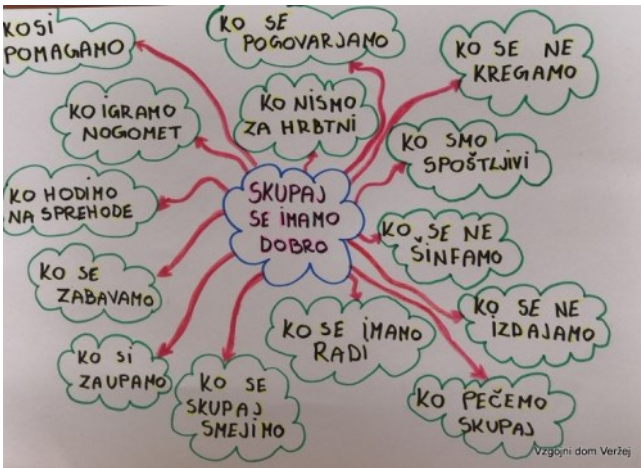 KO SI
POMAGAMO
KO SE
POGOVARJAMO
KO SE NE
KREGAMO
KO IGRAMO
NOGOMET
KO NISMO
ZA HRBTNI
KO SMO
SPOŠTLJIVI
KO HODIMO
NA SPREHODE
SKUPAJ
SE IMAMO
DOBRO
KO SE NE
ŠINFAMO
KO SE
ZABAVAMO
KO SE IMAMO
RADI
KO SE NE
IZDAJAMO
KO SI
ZAUPAMO
KO SE
SKUPAJ
SMEJIMO
KO PEČEMO
SKUPAJ
Vzgojni dom Veržej